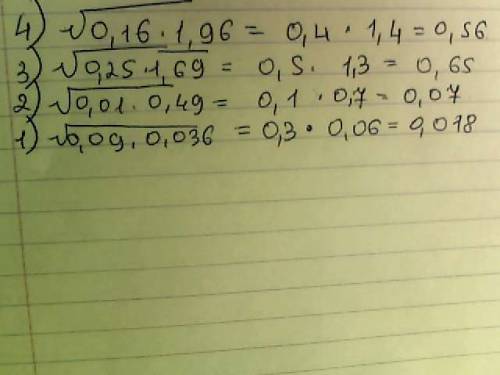 4) √0,16 · 1,96 = 0,4 · 1,4 = 0,56
3) √0,25 · 1,69 = 0,5 · 1,3 = 0,65
2) √0,01 · 0,49 = 0,1 · 0,7 = 0,07
1) √0,09 · 0,036 = 0,3 · 0,06 = 0,018